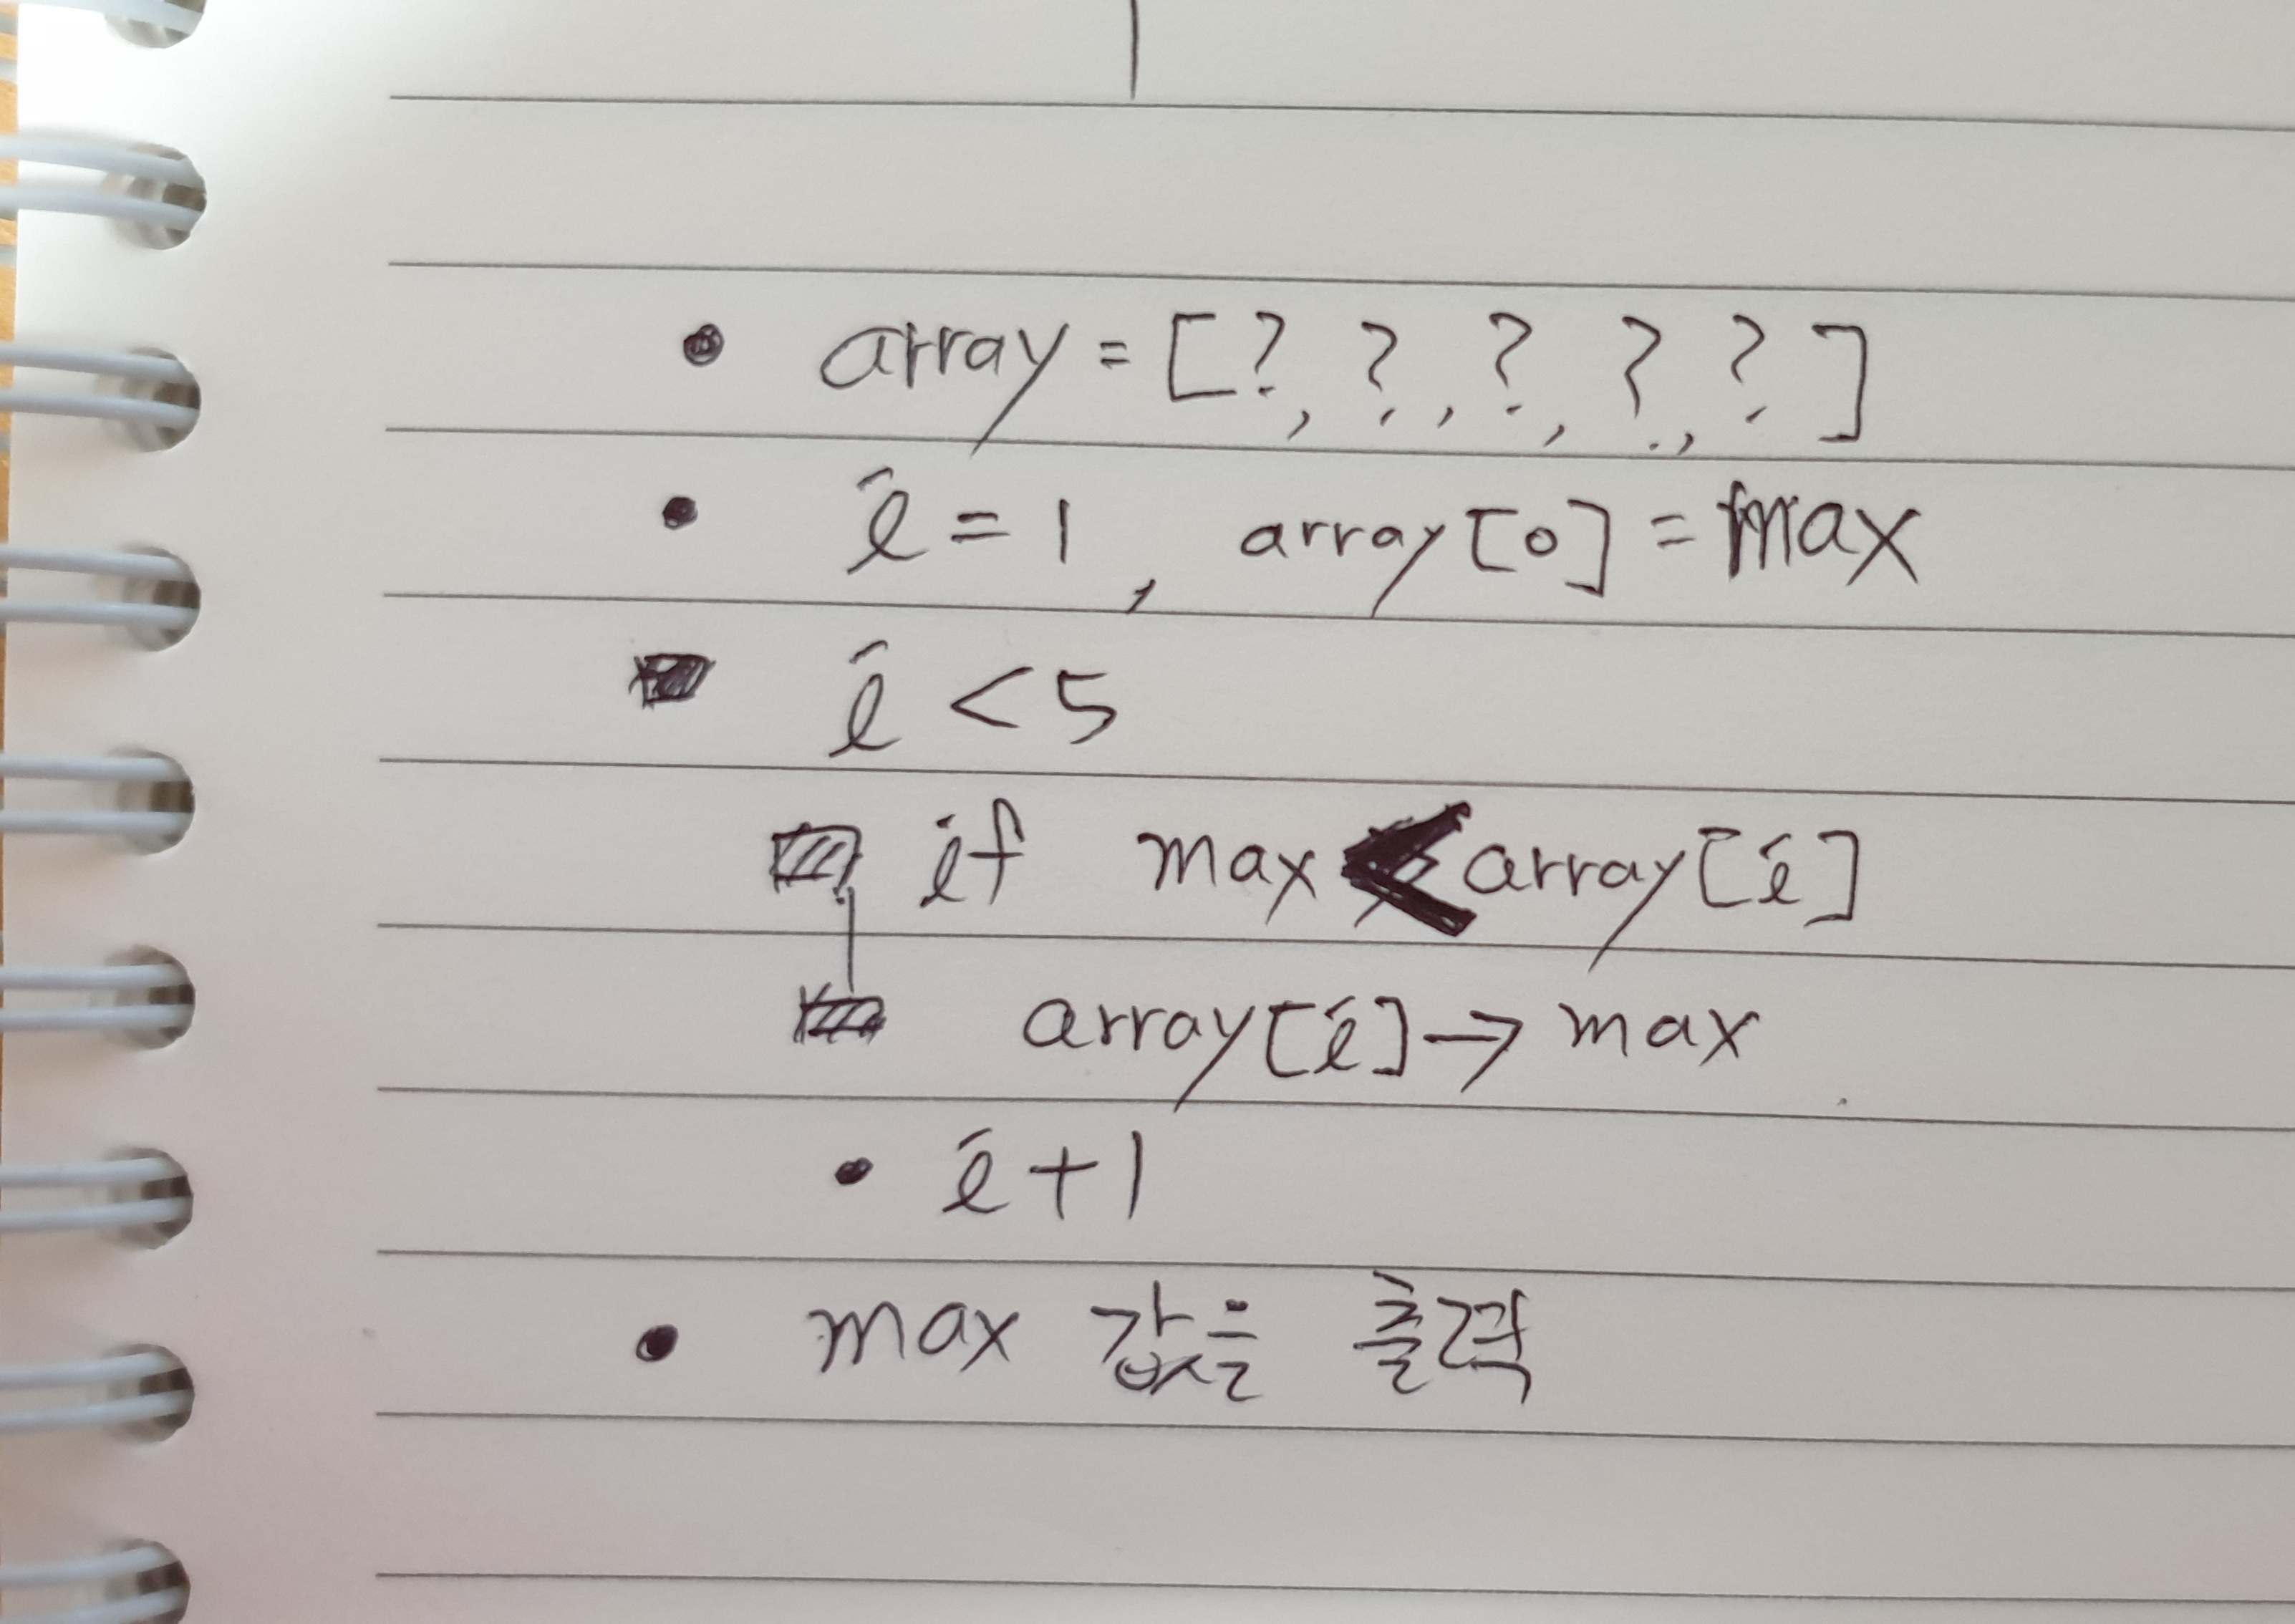 • array = [?, ?, ?, ?, ?]
• i = 1, array[0] = max
■ i < 5
■ if max < array[i]
■ array[i] → max
• i + 1
• max 값을 출력